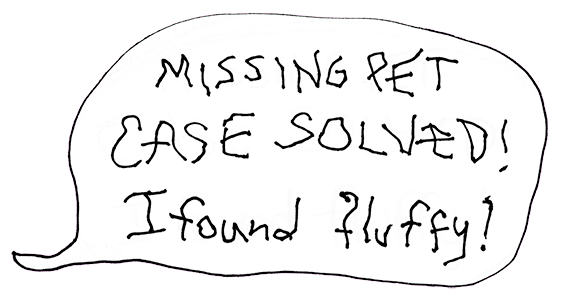 MISSING PET
CASE SOLVED!
I found fluffy!